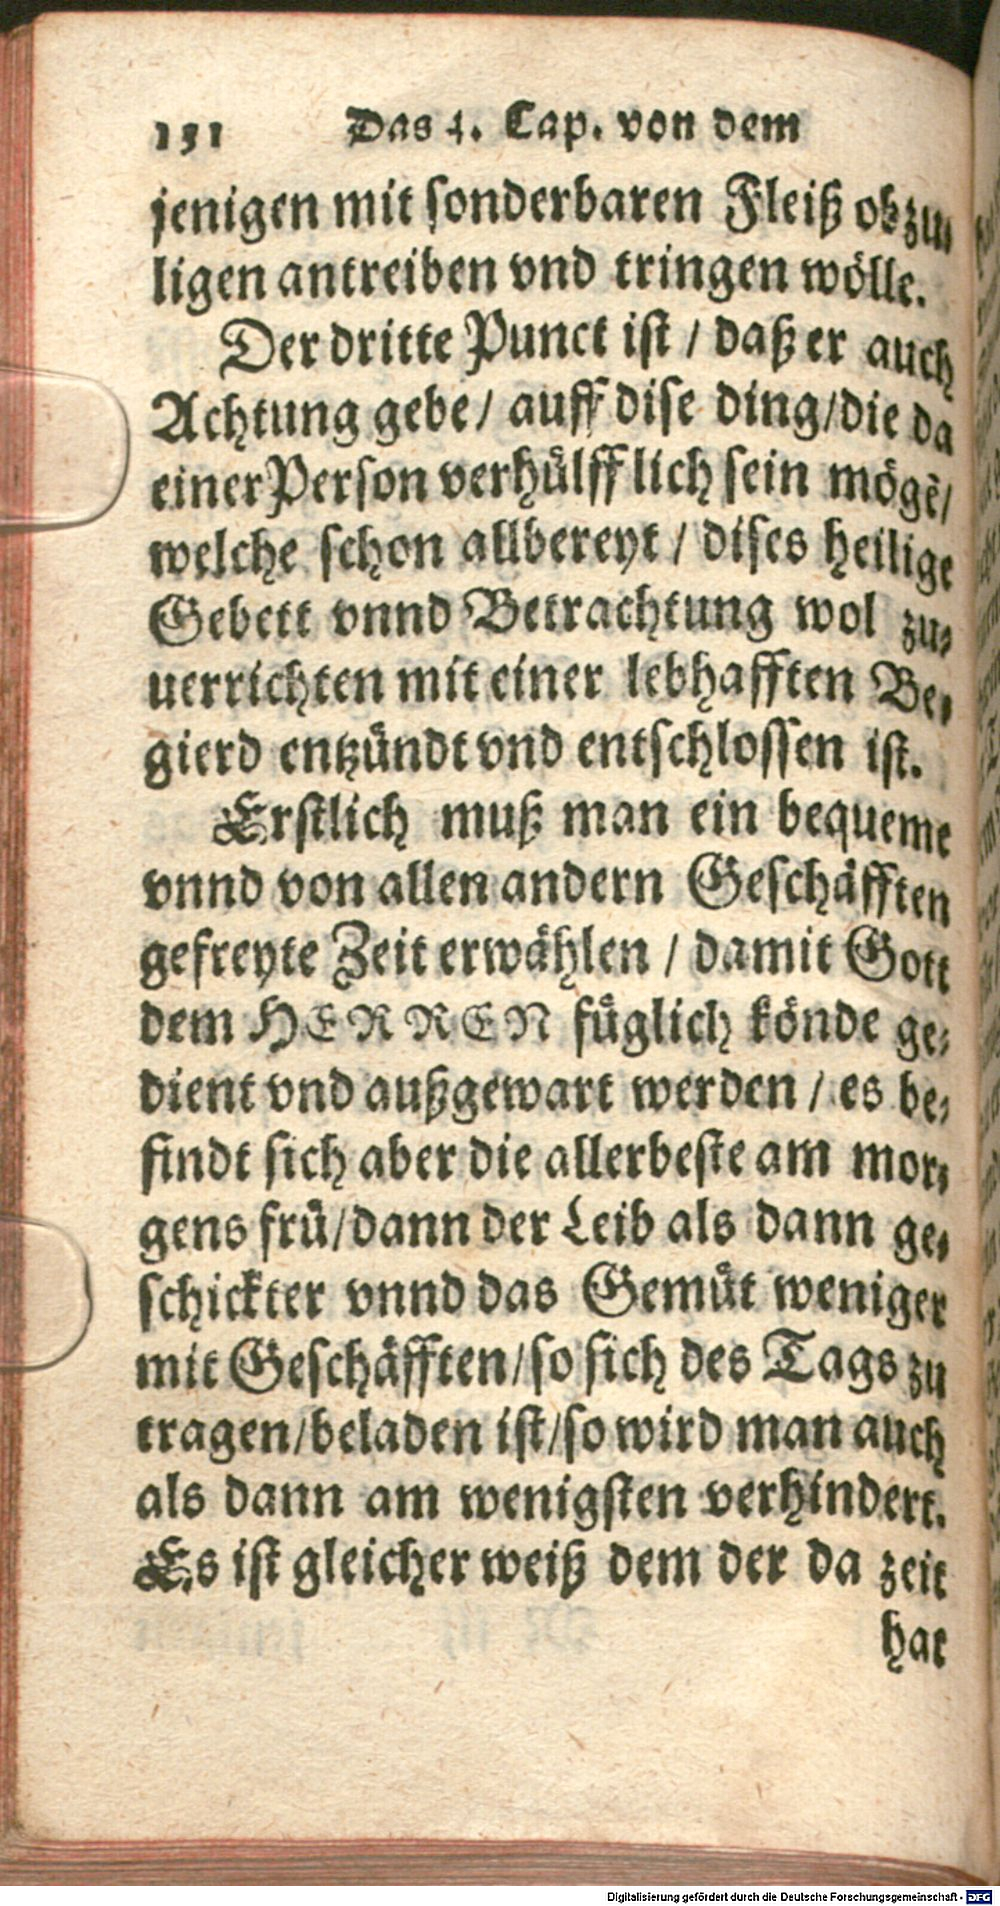 151 Das 4. Cap. von dem
jenigen mit sonderbaren Fleiß obzu-
ligen antreiben vnd tringen wölle.
Der dritte Punct ist / daß er auch
Achtung gebe / auff dise ding / die da
einer Person verhülfflich sein mögē /
welche schon allbereyt / dises heilige
Gebett vnnd Betrachtung wol zu-
uerrichten mit einer lebhafften Be-
gierd entzündt vnd entschlossen ist.
Erstlich muß man ein bequeme
vnnd von allen andern Geschäfften
gefreyte Zeit erwählen / damit Gott
dem HERREN füglich könde ge-
dient vnd außgewart werden / es be-
findt sich aber die allerbeste am mor-
gens frü / dann der Leib als dann ge-
schickter vnnd das Gemüt weniger
mit Geschäfften / so sich des Tags zu
tragen / beladen ist / so wird man auch
als dann am wenigsten verhindert.
Es ist gleicher weiß dem der da zeit
hat
Digitalisierung gefördert durch die Deutsche Forschungsgemeinschaft - DFG